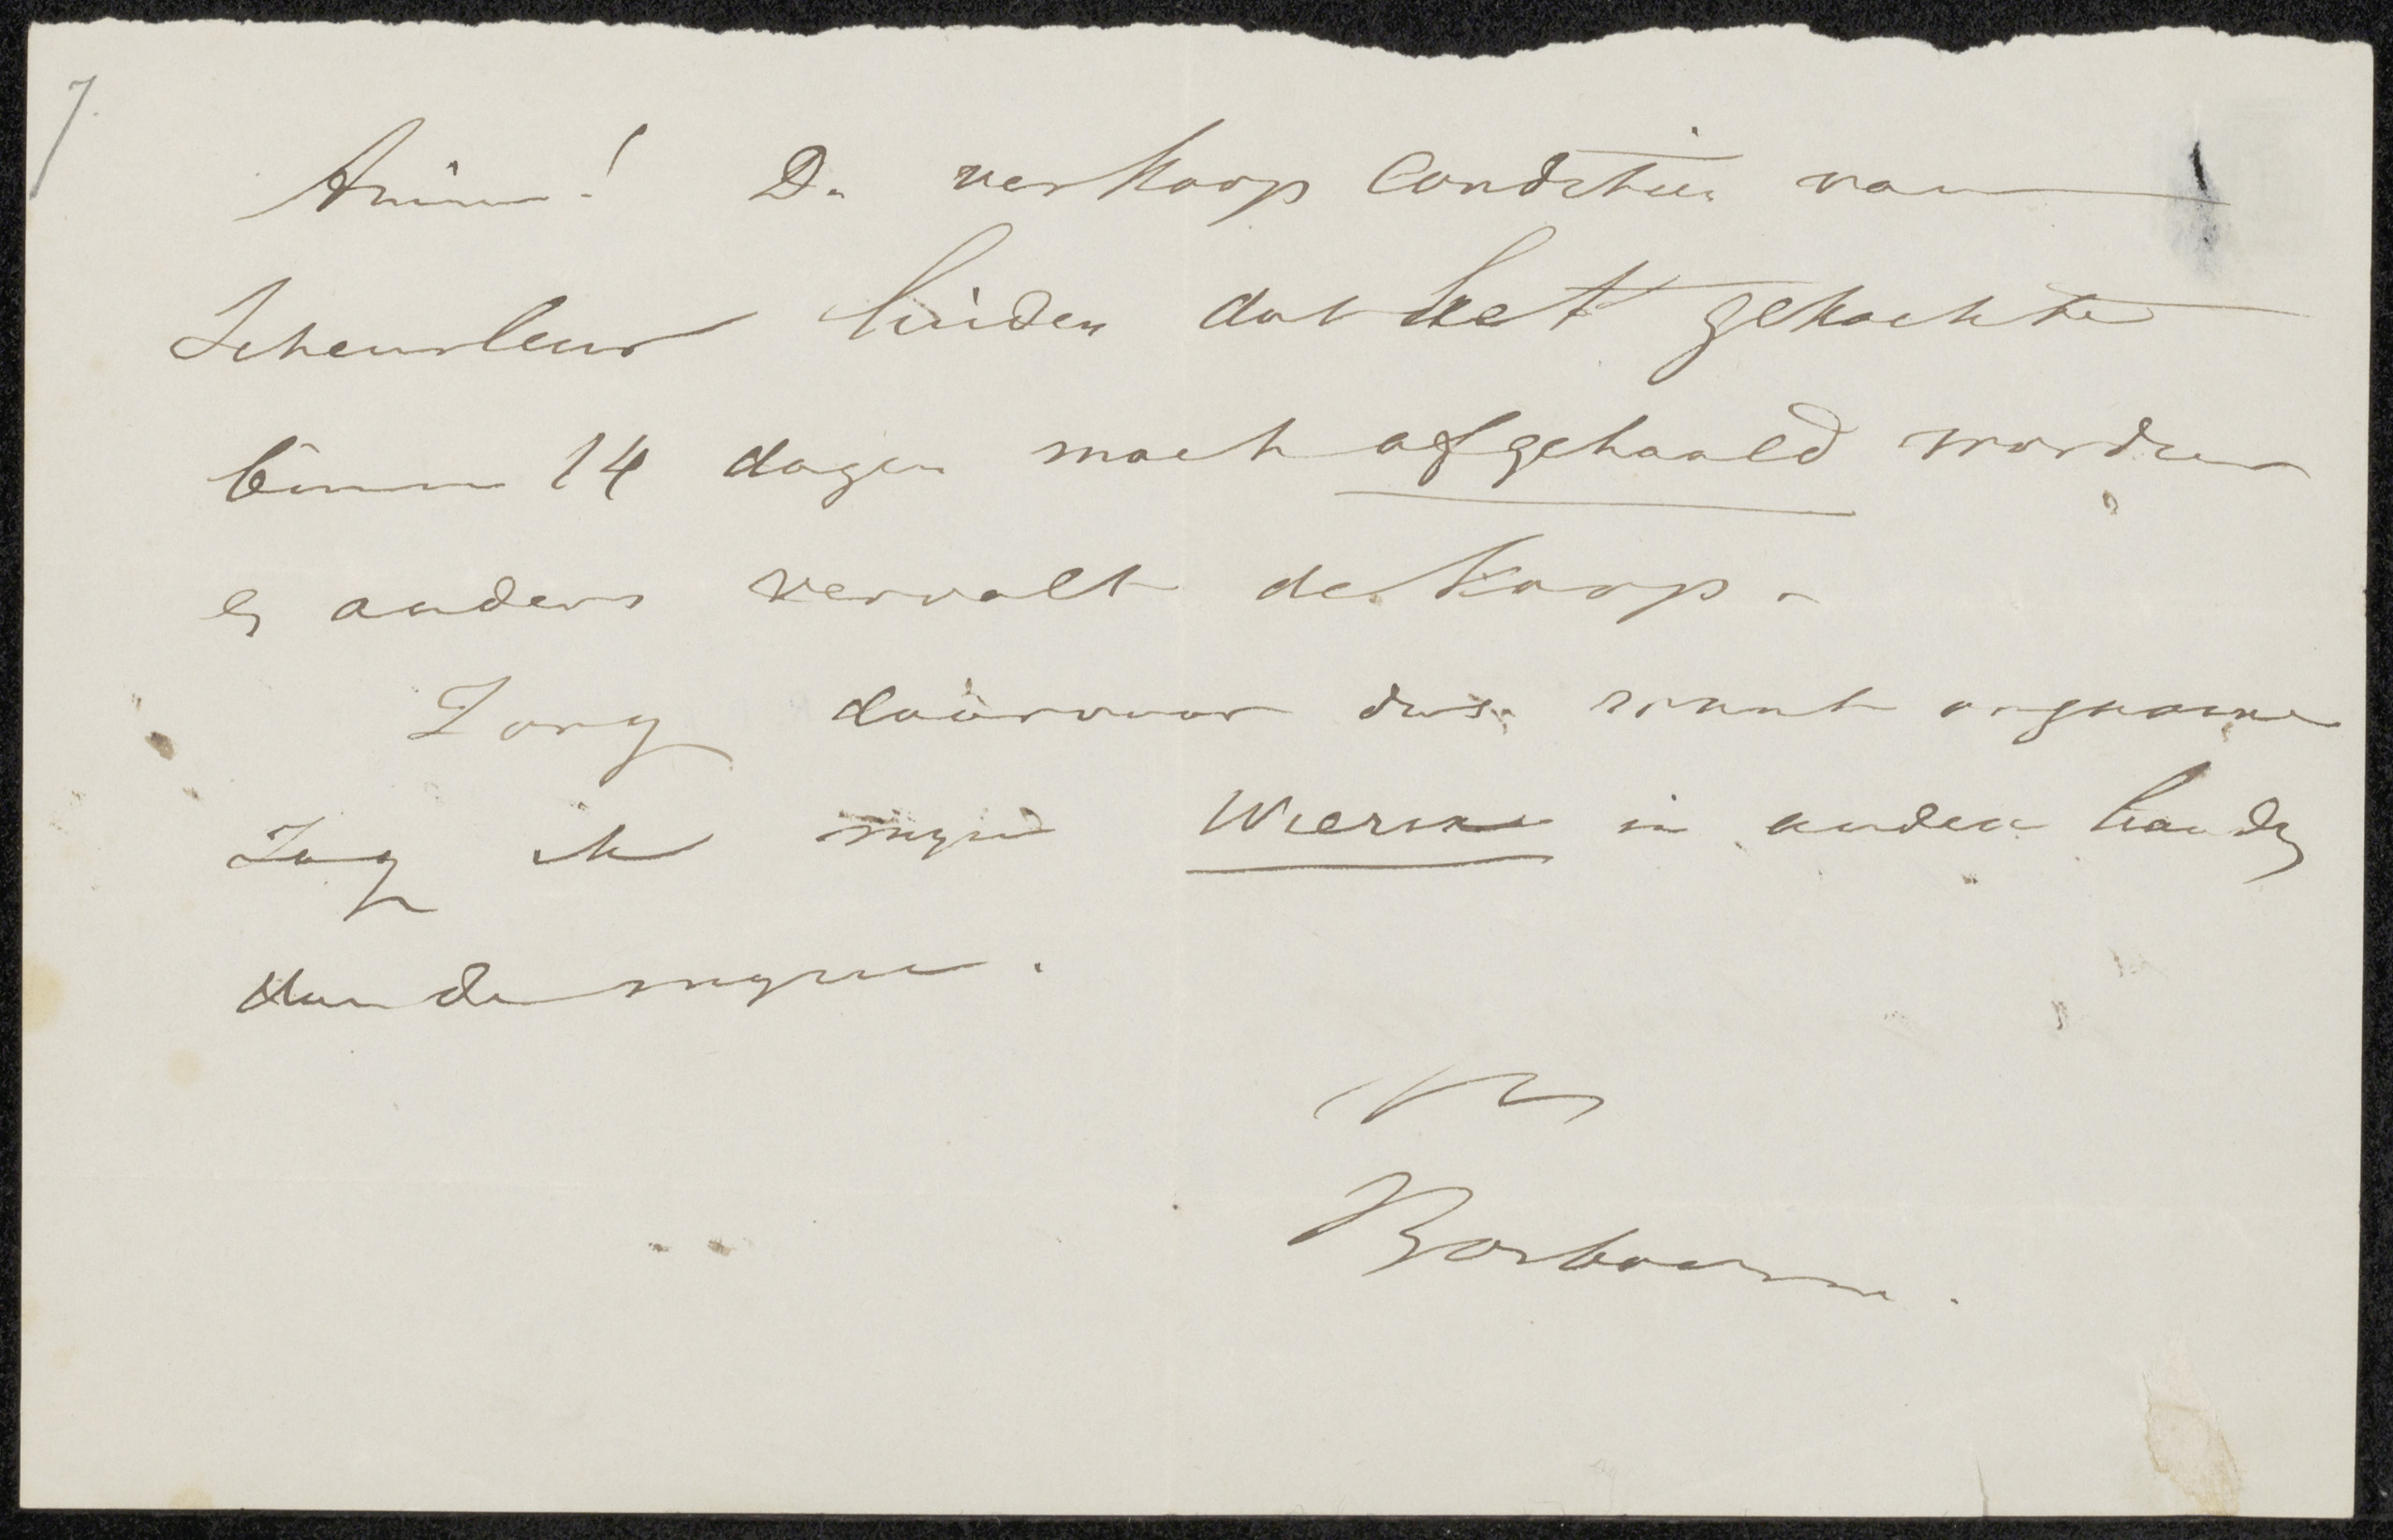 7.
Amice! De verkoop Conditien van
Scheurleer luiden dat het gekochte
binnen 14 dagen moet afgehaald worden
en anders vervalt de koop.
Zorg daarvoor dus want ongaarne
zag ik mijne Wierinx in andere handen
dan de mijne.
Bosboom.